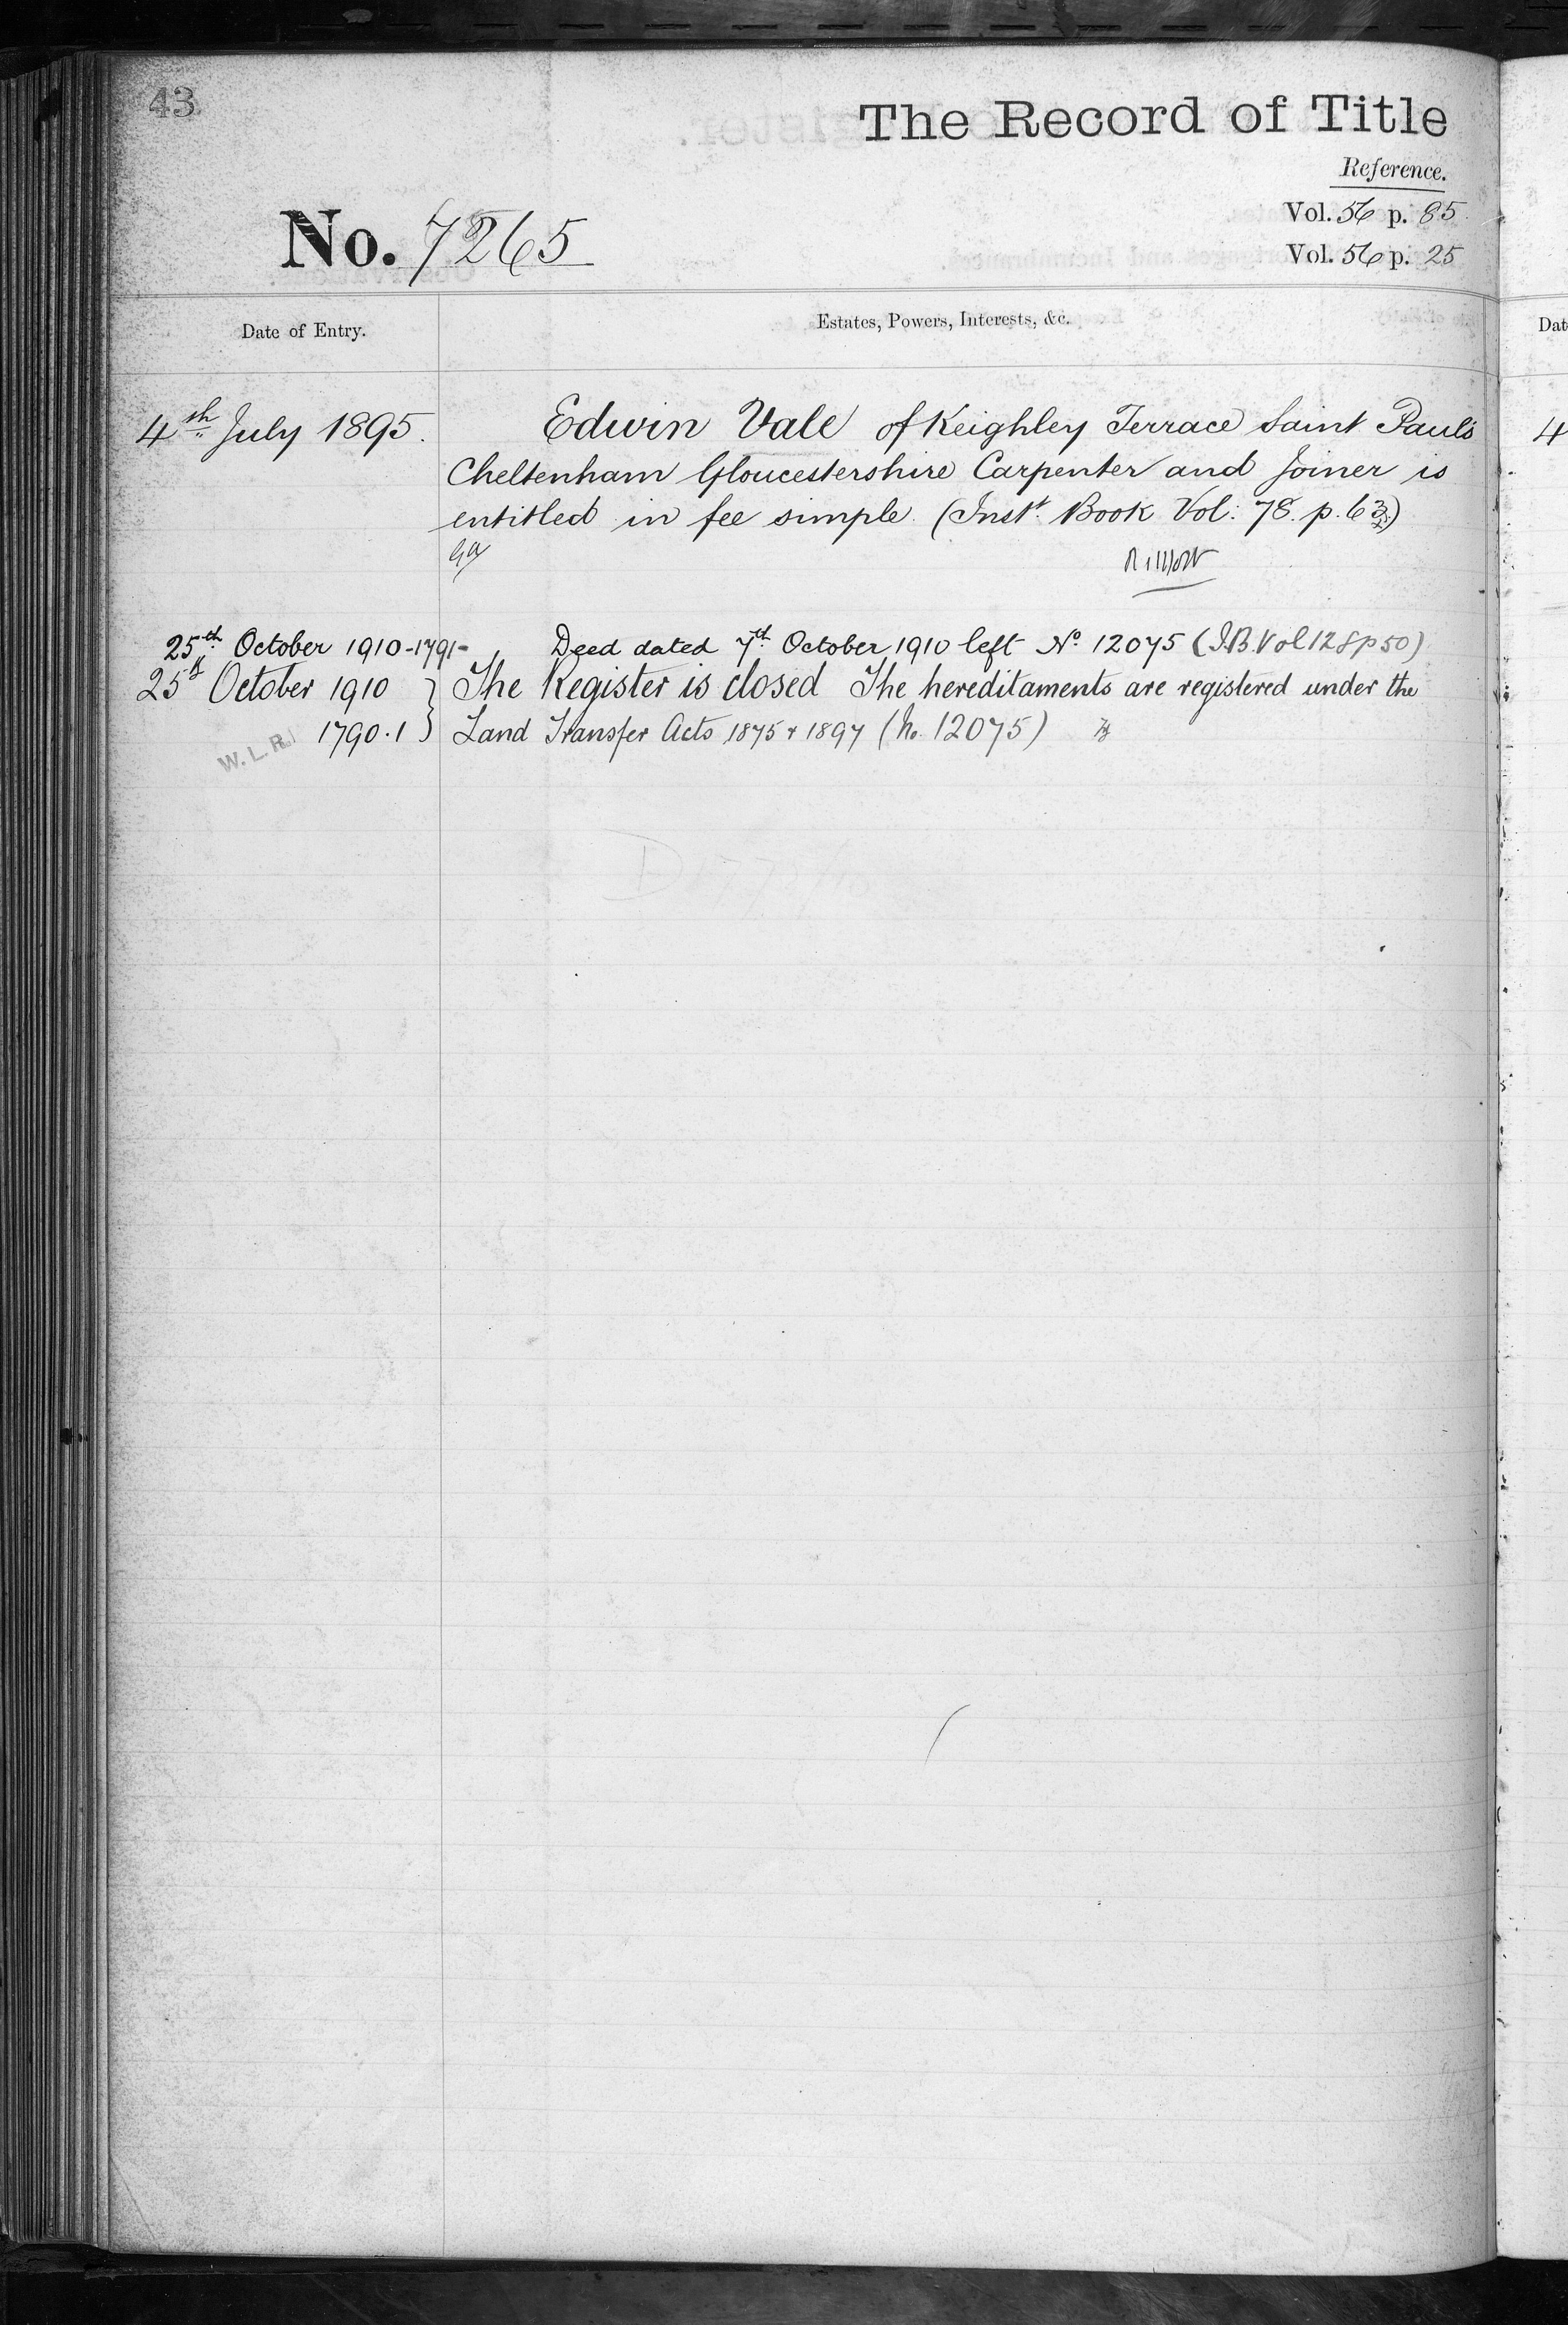 43
The Record of Title
Reference.
No. 7265
Vol. 56 p. 85
Vol. 56 p. 25
Date of Entry.
Estates, Powers, Interests, &c.
4th July 1895.
Edwin Vale of Keighley Terrace Saint Paul's
Cheltenham Gloucestershire Carpenter and Joiner is
entitled in fee simple. (Inst. Book Vol: 78. p. 63)
25th October 1910-1791-
Deed dated 7th October 1910 left No 12075 (I.B. Vol 128 p 50)
25th October 1910
The Register is closed The hereditaments are registered under the
1790.1
Land Transfer Acts 1875 & 1897 (No. 12075)
W. L. R.
Dat
4